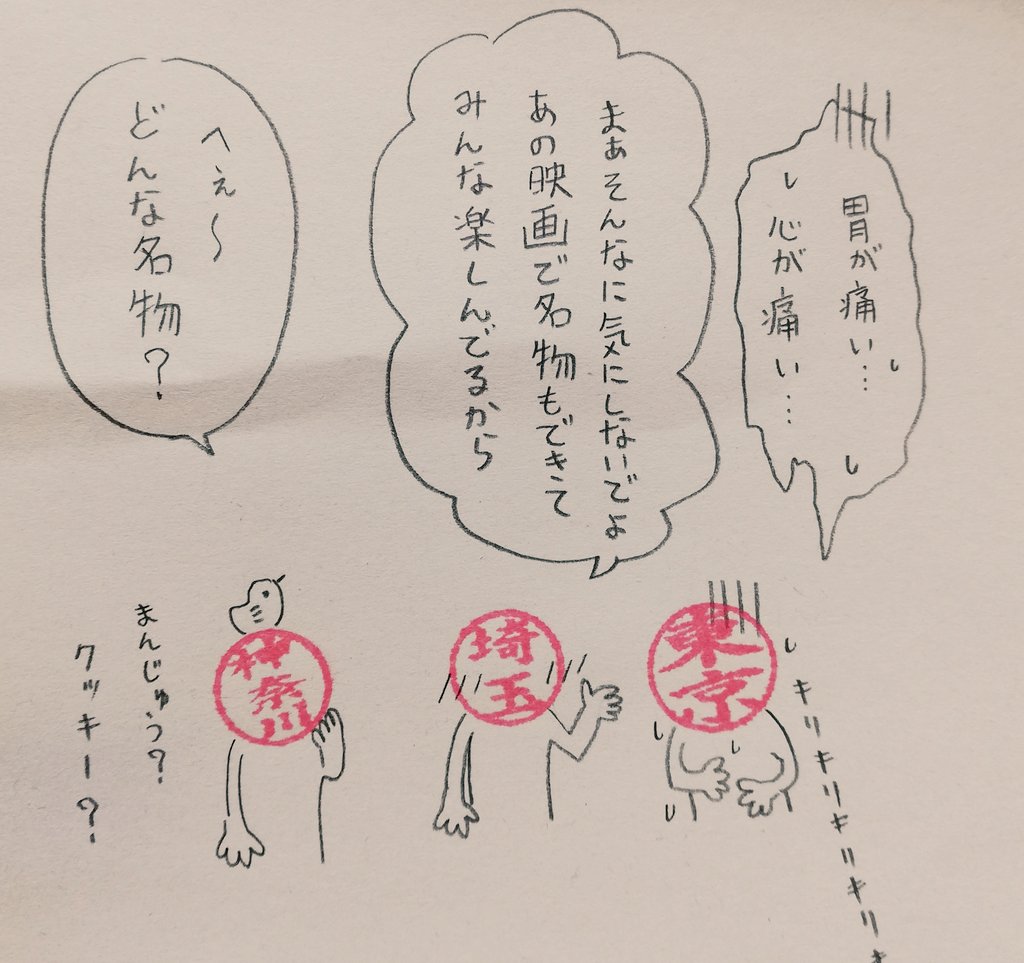 胃が痛い…
心が痛い…
まぁそんなに気にしないでよ
あの映画で名物もできて
みんな楽しんでるから
へぇ〜
どんな名物?
東京
埼玉
神奈川
キリキリキリキリキリキリキ
まんじゅう?
クッキー?